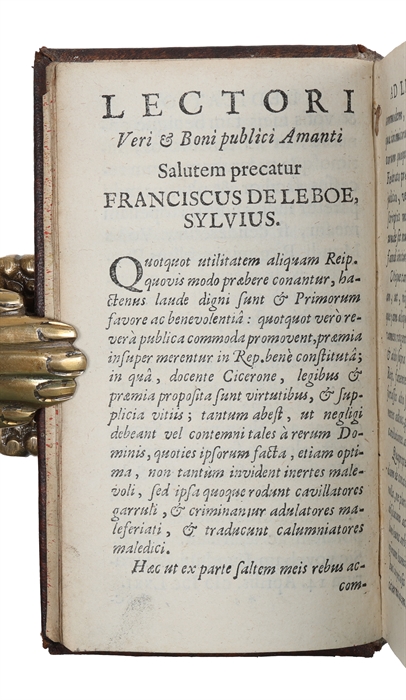 LECTORI
Veri & Boni publici Amanti
Salutem precatur
FRANCISCUS DE LEBOE,
SYLVIUS.
Quotquot utilitatem aliquam Reip.
quovis modo præbere conantur, ha-
ctenus laude digni ſunt & Primorum
favore ac benevolentiâ: quotquot verò re-
verà publica commoda promovent, præmia
inſuper merentur in Rep. benè conſtitutâ;
in quâ, docente Cicerone, legibus &
præmia propoſita ſunt virtutibus, & ſup-
plicia vitiis; tantum abeſt, ut negligi
debeant vel contemni tales à rerum Do-
minis, quoties ipſorum facta, etiam opti-
ma, non tantùm invident inertes male-
voli, ſed ipſa quoque rodunt cavillatores
garruli, & criminantur adulatores ma-
leferiati, & traducunt calumniatores
maledici.
Hæc ut ex parte ſaltem meis rebus ac-
com-
AD L